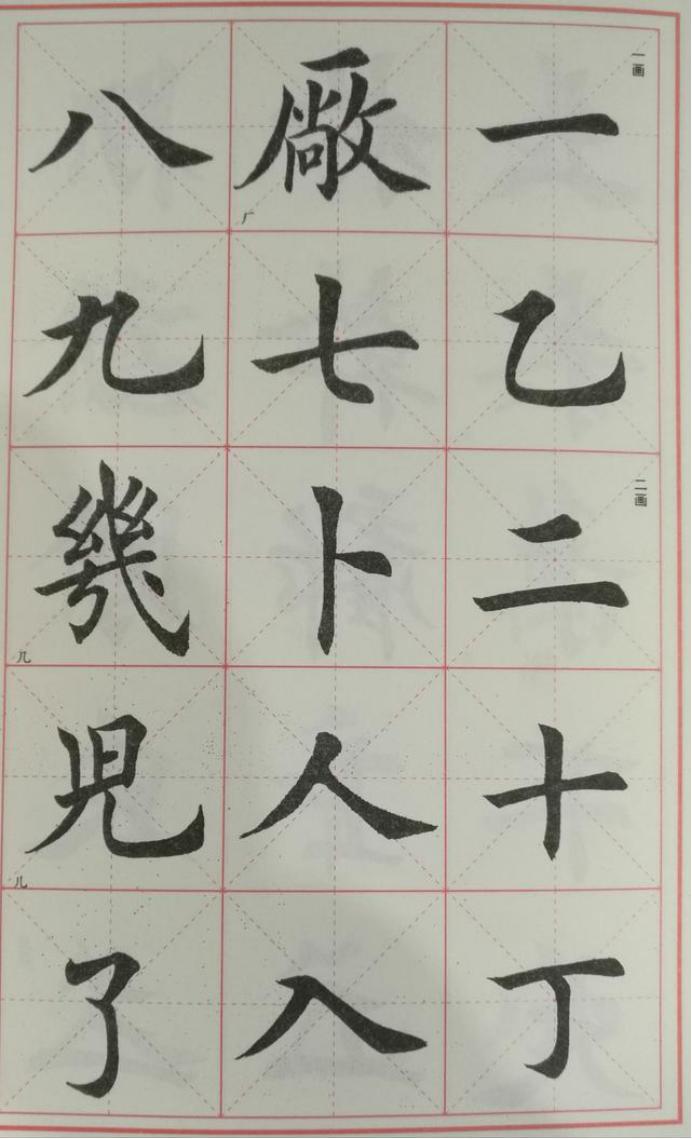 一画
一
乙
二画
二
十
丁
廠
厂
七
卜
人
入
八
九
幾
几
兒
儿
了